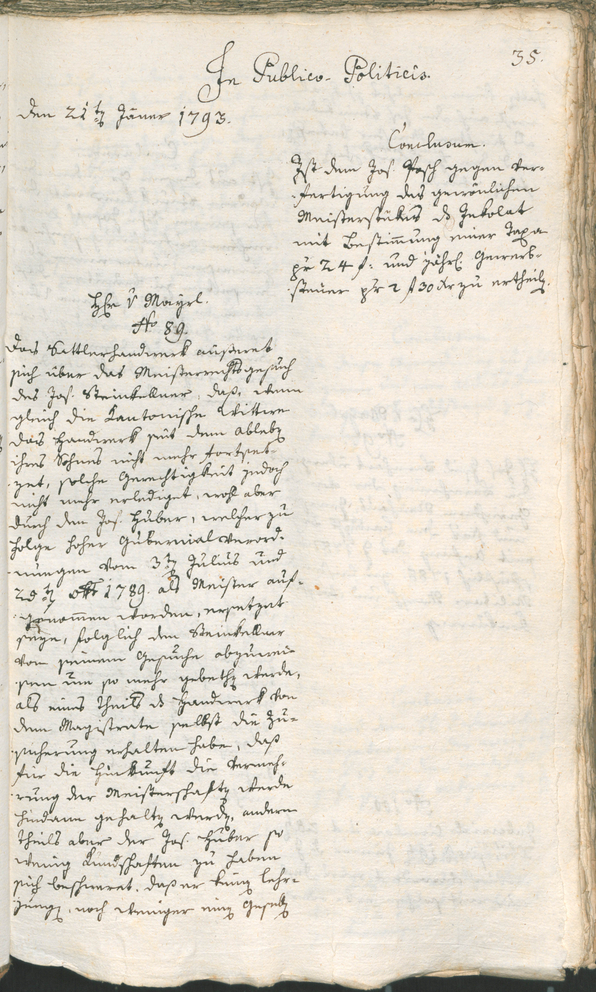 35.
In Publico-Politicis.
den 21tn Jäner 1793.
Conclusum.
Ist dem Jos. Posch gegen Ver-
fertigung des gewönlichen
Meisterstükes ds Inkolat
mit Bestimung einer Taxa
pr 24 f. und jährl. Gewerb-
steuer pr 2 f 30 kr zu ertheiln.
Hr v Mayrl.
No 89.
Das Sattlerhandwerk äußeret
sich über das Meisterrechtsgesuch
des Jos. Steinkellner, daß, wenn
gleich die Kantonische Wittwe
das Handwerk seit dem Ableben
ihres Sohnes nicht mehr fortset-
zet, solche Gerechtigkeit jedoch
nicht mehr erlediget, wohl aber
durch den Jos. Huber, welcher zu
folge hoher Gubernial verord-
nungen vom 3tn Julius und
29tn 1789. als Meister auf-
genommen worden, ersetzet
seye, folglich den Steinkellner
von seinem Gesuche abzuwei-
sen um so mehr gebethen werde,
als eines theils ds Handwerk von
dem Magistrate selbst die Zu-
sicherung erhalten habe, daß
für die Hinkunft die Vermeh-
rung der Meisterschaften werde
hindann gehalten werden, andern
theils aber der Jos. Huber so
wenig Kundschaften zu haben
sich beschweret, daß er keinen Lehr-
jungen, noch weniger einen Gesellen